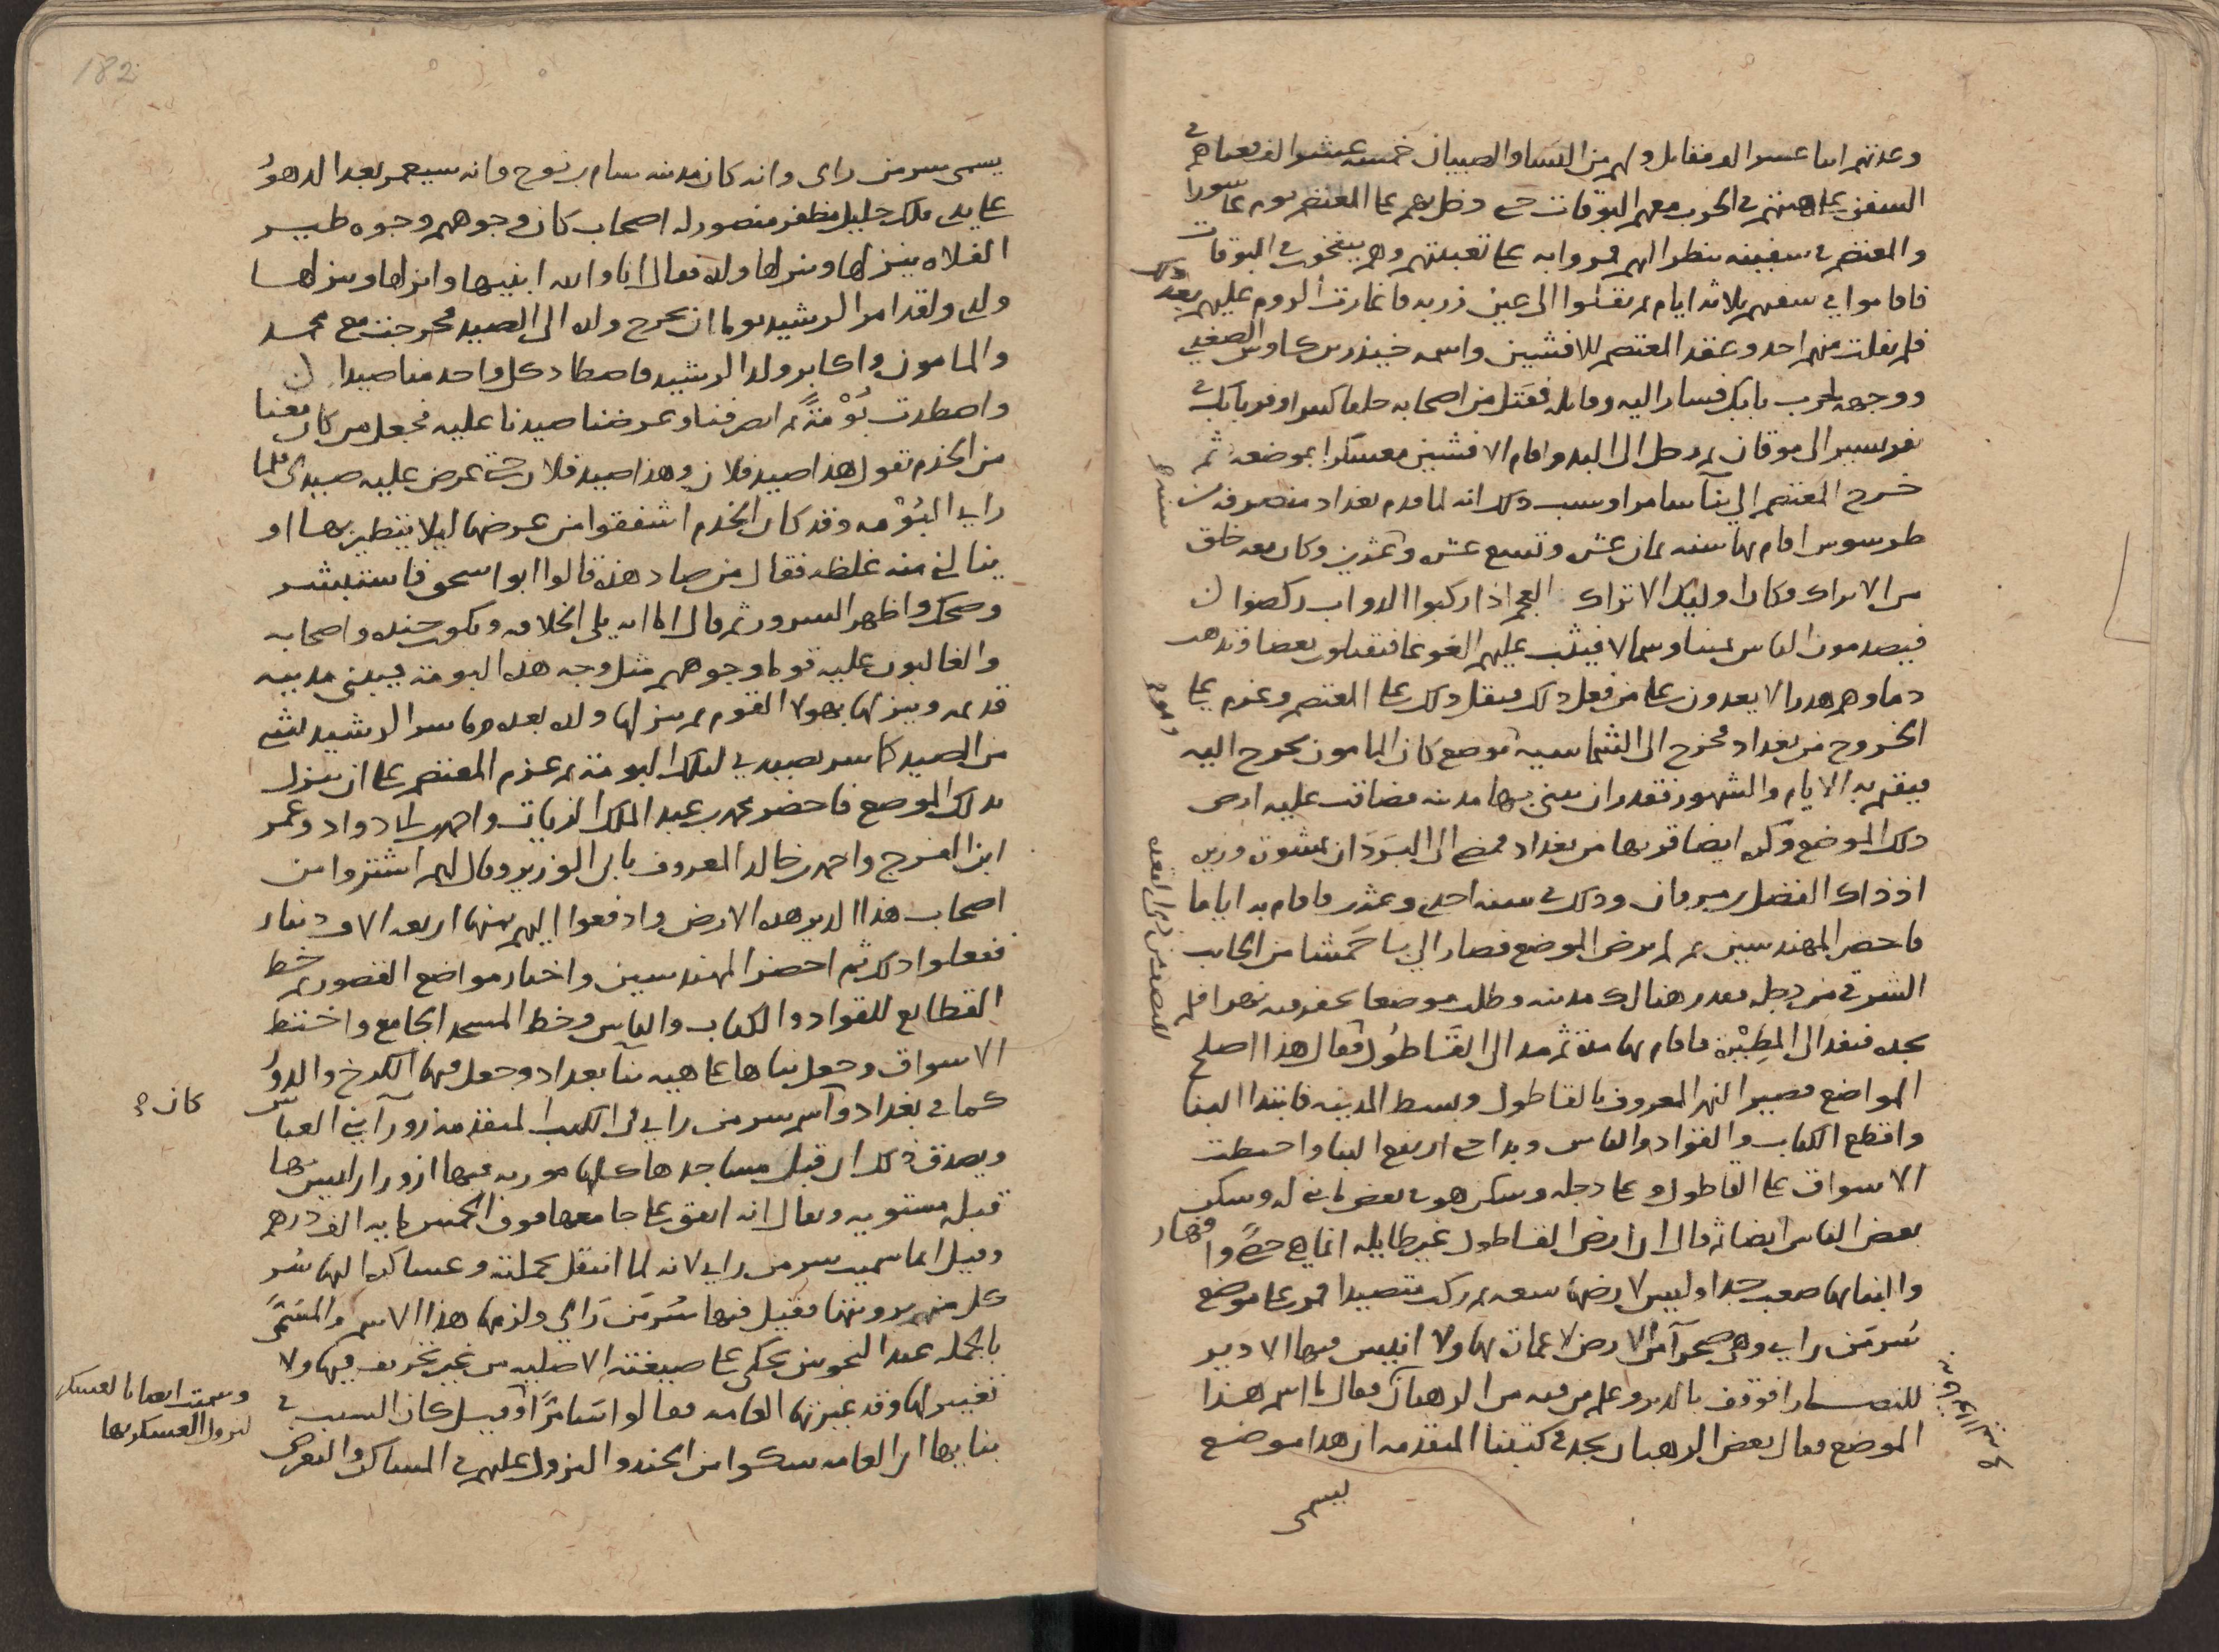 وعدتهم اثنا عشر الف مقاتل ولهم من النسا والصبيان خمسة عشر الف فعباهم في
السفن على هيئتهم في الحرب معهم البوقات حتى دخل بهم على المعتصم يوم عاشورا
والمعتصم في سفينه ينظر اليهم فمروا به على تعبيتهم وهم ينفخون في البوقات
فاقاموا في سفنهم ثلاثه ايام ثم نقلوا الى عين زربه فاغارت الروم عليهم بعد ذلك
فلم يفلت منهم احد وعقد المعتصم للافشين واسمه خيذر بن كاوس الصغدي
ووجهه لحرب بابك فسار اليه وقاتله فقتل من اصحابه خلقا كثيرا وهرب بابك في
نفر يسير الى موقان ثم دخل الى البد واقام الافشين معسكرا بموضعه ثم
خرج المعتصم الى بنآ سامرا وسبب ذلك انه لما قدم بغداد منصرفه من
طرسوس اقام بها سنه ثمان عشر وتسع عشر وعشرين وكان معه خلق
من الاتراك وكان اوليك الاتراك العجم اذا ركبوا الدواب ركضوا
فيصدمون الناس يمينا وشمالا فيثب عليهم الغوغا فيقتلون بعضا وتذهب
دماوهم هدرا لا يعدون على من فعل ذلك فثقل ذلك على المعتصم وعزم على
الخروج من بغداد فخرج الى الشماسيه موضع كان المامون يخرج اليه
فيقيم به الايام والشهور فقدر ان يبني بها مدينه فضاقت عليه ارض
ذلك الموضع وكره ايضا قربها من بغداد فمضى الى البَرَدَان بمشورة وزيره
اذ ذاك الفضل بن مروان وذلك في سنه احدى وعشرين فاقام به اياما
فاحضر المهندسين ثم لم يرض الموضع فصار الى باحَمشا من الجانب
الشرقي من دجله فقدر هنالك مدينه وطلب موضعا يحفر فيه نهرا فلم
يجده فنفد الى المطيرة فاقام بها مدة ثم مد الى القَاطُول فقال هذا اصلح
المواضع فصير النهر المعروف بالقاطول وبسط المدينه فابتدا البنا
واقطع الكتاب والقواد والناس وبدا حتى ارتفع البنا واختطت
الاسواق على القاطول وعلى دجله وسكن هو في بعض ما بني له وسكن
بعض الناس ايضا ثم قال ان ارض القاطول غير طايله انما هي حصًى وافهار
والبنا بها صعب جدا وليس لارضها سعه ثم ركب متصيدا فمر على موضع
سُرمَن راى وهي صحرآ من الارض لا عمارة بها ولا انيس فيها الا دير
للنصارى فوقف بالدير وكلم من فيه من الرهبان فقال ما اسم هذا
الموضع فقال بعض الرهبان نجد في كتبنا المتقدمه ان هذا موضع
يسمى
182
يسمى سر من راى وانه كان مدينه سام بن نوح وانه سيعمر بعد الدهور
على يدي ملك جليل مظفر منصور له اصحاب كان وجوههم وجوه طير
الفلاه ينزلها وينزلها ولده فقال انا والله ابنيها وانزلها وينزلها
ولدي ولقد امر الرشيد يوما ان يخرج ولده الى الصيد فخرجت مع محمد
والمامون واكابر ولد الرشيد فاصطاد كل واحد منا صيدا
واصطدت بُوْمَةً ثم انصرفنا وعرضنا صيدنا عليه فجعل من كان معنا
من الخدم تقول هذا صيد فلان وهذا صيد فلان حتى عرض عليه صيدي فلما
راى البُوْمه وقد كان الخدم اشفقوا من عرضها ليلا يتطير بها او
ينالني منه غلظه فقال من صاد هذه قالوا ابو اسحق فاستبشر
وضحك واظهر السرور ثم قال اما انه يلي الخلافه ويكون جنده واصحابه
والغالبون عليه قوما وجوههم مثل وجه هذه البومه فيبني مدينه
قديمه وينزلها بهولا القوم ثم ينزلها ولده بعده وما سر الرشيد بشي
من الصيد كما سر بصيدي لتلك البومه ثم عزم المعتصم على ان ينزل
بذلك الموضع فاحضر محمد بن عبد الملك الزيات واحمد بن ابي دواد وعمر
ابن الفرج واحمد بن خالد المعروف بابي الوزير وقال لهم اشتروا من
اصحاب هذا الدير هذه الارض وادفعوا اليهم ثمنها اربعه الاف دينار
ففعلوا ذلك ثم احضر المهندسين واختار مواضع القصور ثم خط
القطايع للقواد والكتاب والناس وخط المسجد الجامع واختط
الاسواق وجعل بناها على هيه بنآ بغداد وجعل فيها الكرخ والدور
كما في بغداد وآسم سر من راى في الكتب المتقدمه زورآ بني العباس
ويصدق ذلك ان قبل مساجدها كلها مزوره فيها ازورار ليس بها
قبله مستويه ويقال انه انفق على جامعها فوق الخمس مايه الف درهم
وقيل انما سميت سر من راى لانه لما انتقل بجملته وعساكره اليها سُر
كل منهم برويتها فقيل فيها سُرمَن رَاى ولزمها هذا الاسم والمسَمَّى
بالجمله عند النحويين يحكى على صيغته الاصليه من غير تحريف فيها ولا
تغيير لها وقد غيرتها العامه فقالوا سَامرَّا وقيل كان السبب في
بنايها ان العامه شكوا من الجند والنزول عليهم في المساكن والتعرض
كان
وسميت ايضا بالعسكر
لنزول العسكر بها